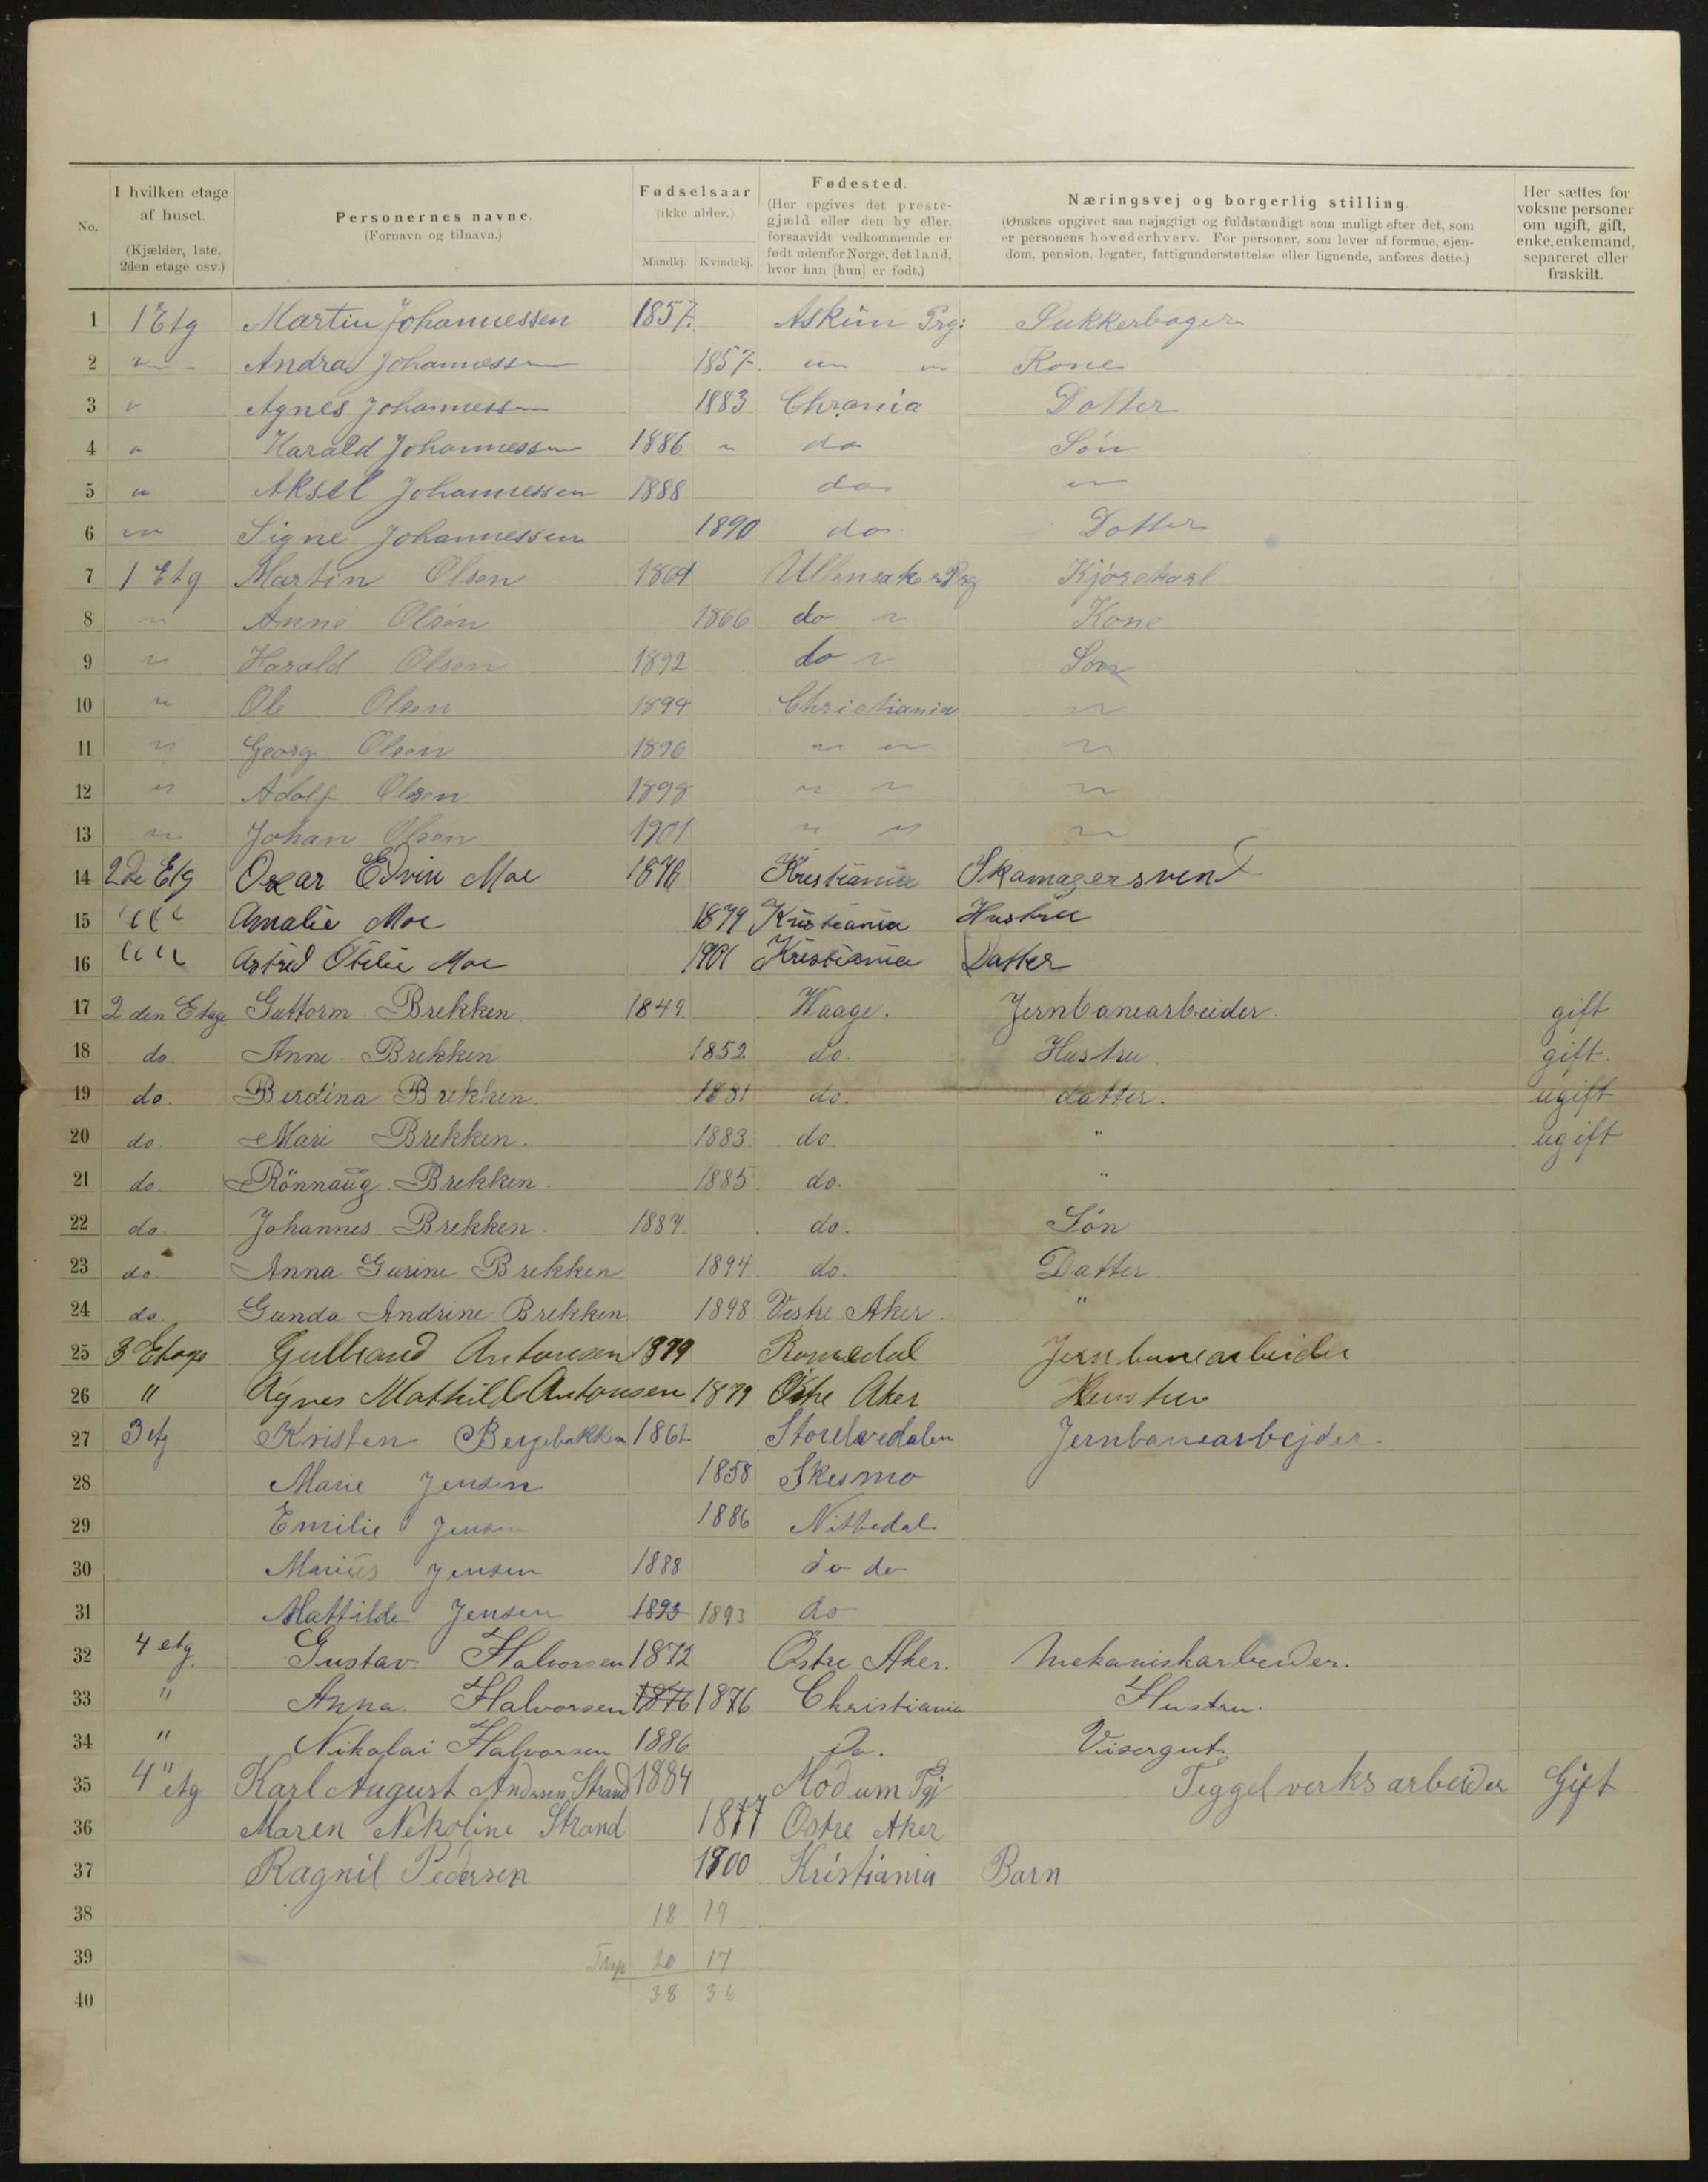 No.
I hvilken etage af huset.
(Kjælder, 1ste, 2den etage osv.)
Personernes navne.
(Fornavn og tilnavn.)
Fødselsaar
(ikke alder.)
Mandkj. Kvindekj.
Fødested.
(Her opgives det prestegjæld eller den by eller, forsaavidt vedkommende er født udenfor Norge, det land, hvor han [hun] er født.)
Næringsvej og borgerlig stilling.
(Ønskes opgivet saa nøjagtigt og fuldstændigt som muligt efter det, som er personens hovederhverv. For personer, som lever af formue, ejendom, pension, legater, fattigunderstøttelse eller lignende, anføres dette.)
Her sættes for voksne personer om ugift, gift, enke, enkemand, separeret eller fraskilt.
1 1 Etg Martin Johannessen 1857. Askim Prg: Sukkerbager
2 " Andrea Johannessen 1857. " " Kone
3 " Agnes Johannessen 1883 Chrania Datter
4 " Harald Johannessen 1886 " do Søn
5 " Aksel Johannessen 1888 do "
6 " Signe Johannessen 1890 do Datter
7 1 Etg Martin Olsen 1864 Ullensaker Prg Kjørekarl
8 " Anne Olsen 1866 do " Kone
9 " Harald Olsen 1892 do " Søn
10 " Ole Olsen 1894 Christiania "
11 " Georg Olsen 1896 " " "
12 " Adolf Olsen 1898 " " "
13 " Johan Olsen 1901 " " "
14 2de Etg Oscar Edvin Moe 1876 Kristiania Skomagersvend
15 " Amalie Moe 1879 Kristiania Hustru
16 " Astrid Otilie Moe 1901 Kristiania Datter
17 2 den Etage Guttorm Brekken 1849 Waage. Jernbanearbeider. gift
18 do. Anne Brekken 1852 do. Hustru gift.
19 do. Berdina Brekken 1881 do. datter. ugift
20 do. Mari Brekken. 1883. do. " ugift
21 do. Rönnaug Brekken. 1885. do. "
22 do. Johannes Brekken. 1887 do. Søn
23 do. Anna Gurine Brekken 1894. do. Datter.
24 do. Gunda Andrine Brekken. 1898 Vestre Aker. "
25 3 Etage Gulbrand Antonsen 1879 Romedal Jernbanearbeider
26 " Agnes Mathilde Antonsen 1879 Østre Aker Hustru
27 3 etg Kristen Bergebakken 1861 Storelvedalen Jernbanearbejder
28 Marie Jensen 1858 Skesmo
29 Emilie Jensen 1886 Nittedal
30 Marius Jensen 1888 do do
31 Mathilde Jensen 1893 1893 do
32 4 etg. Gustav. Halvorsen 1872 Østre Aker. Mekaniskarbeider.
33 " Anna. Halvorsen 1876 1876 Christiania Hustru.
34 " Nikolai Halvorsen 1886 Do. Visergut.
35 4" etg Karl August Andersen Strand 1884 Modum Pgj Teggelverksarbeider Gift
36 Maren Nekoline Strand 1877 Østre Aker
37 Ragnil Pedersen 1900 Kristiania Barn
38 18 19
39 20 17
40 38 36